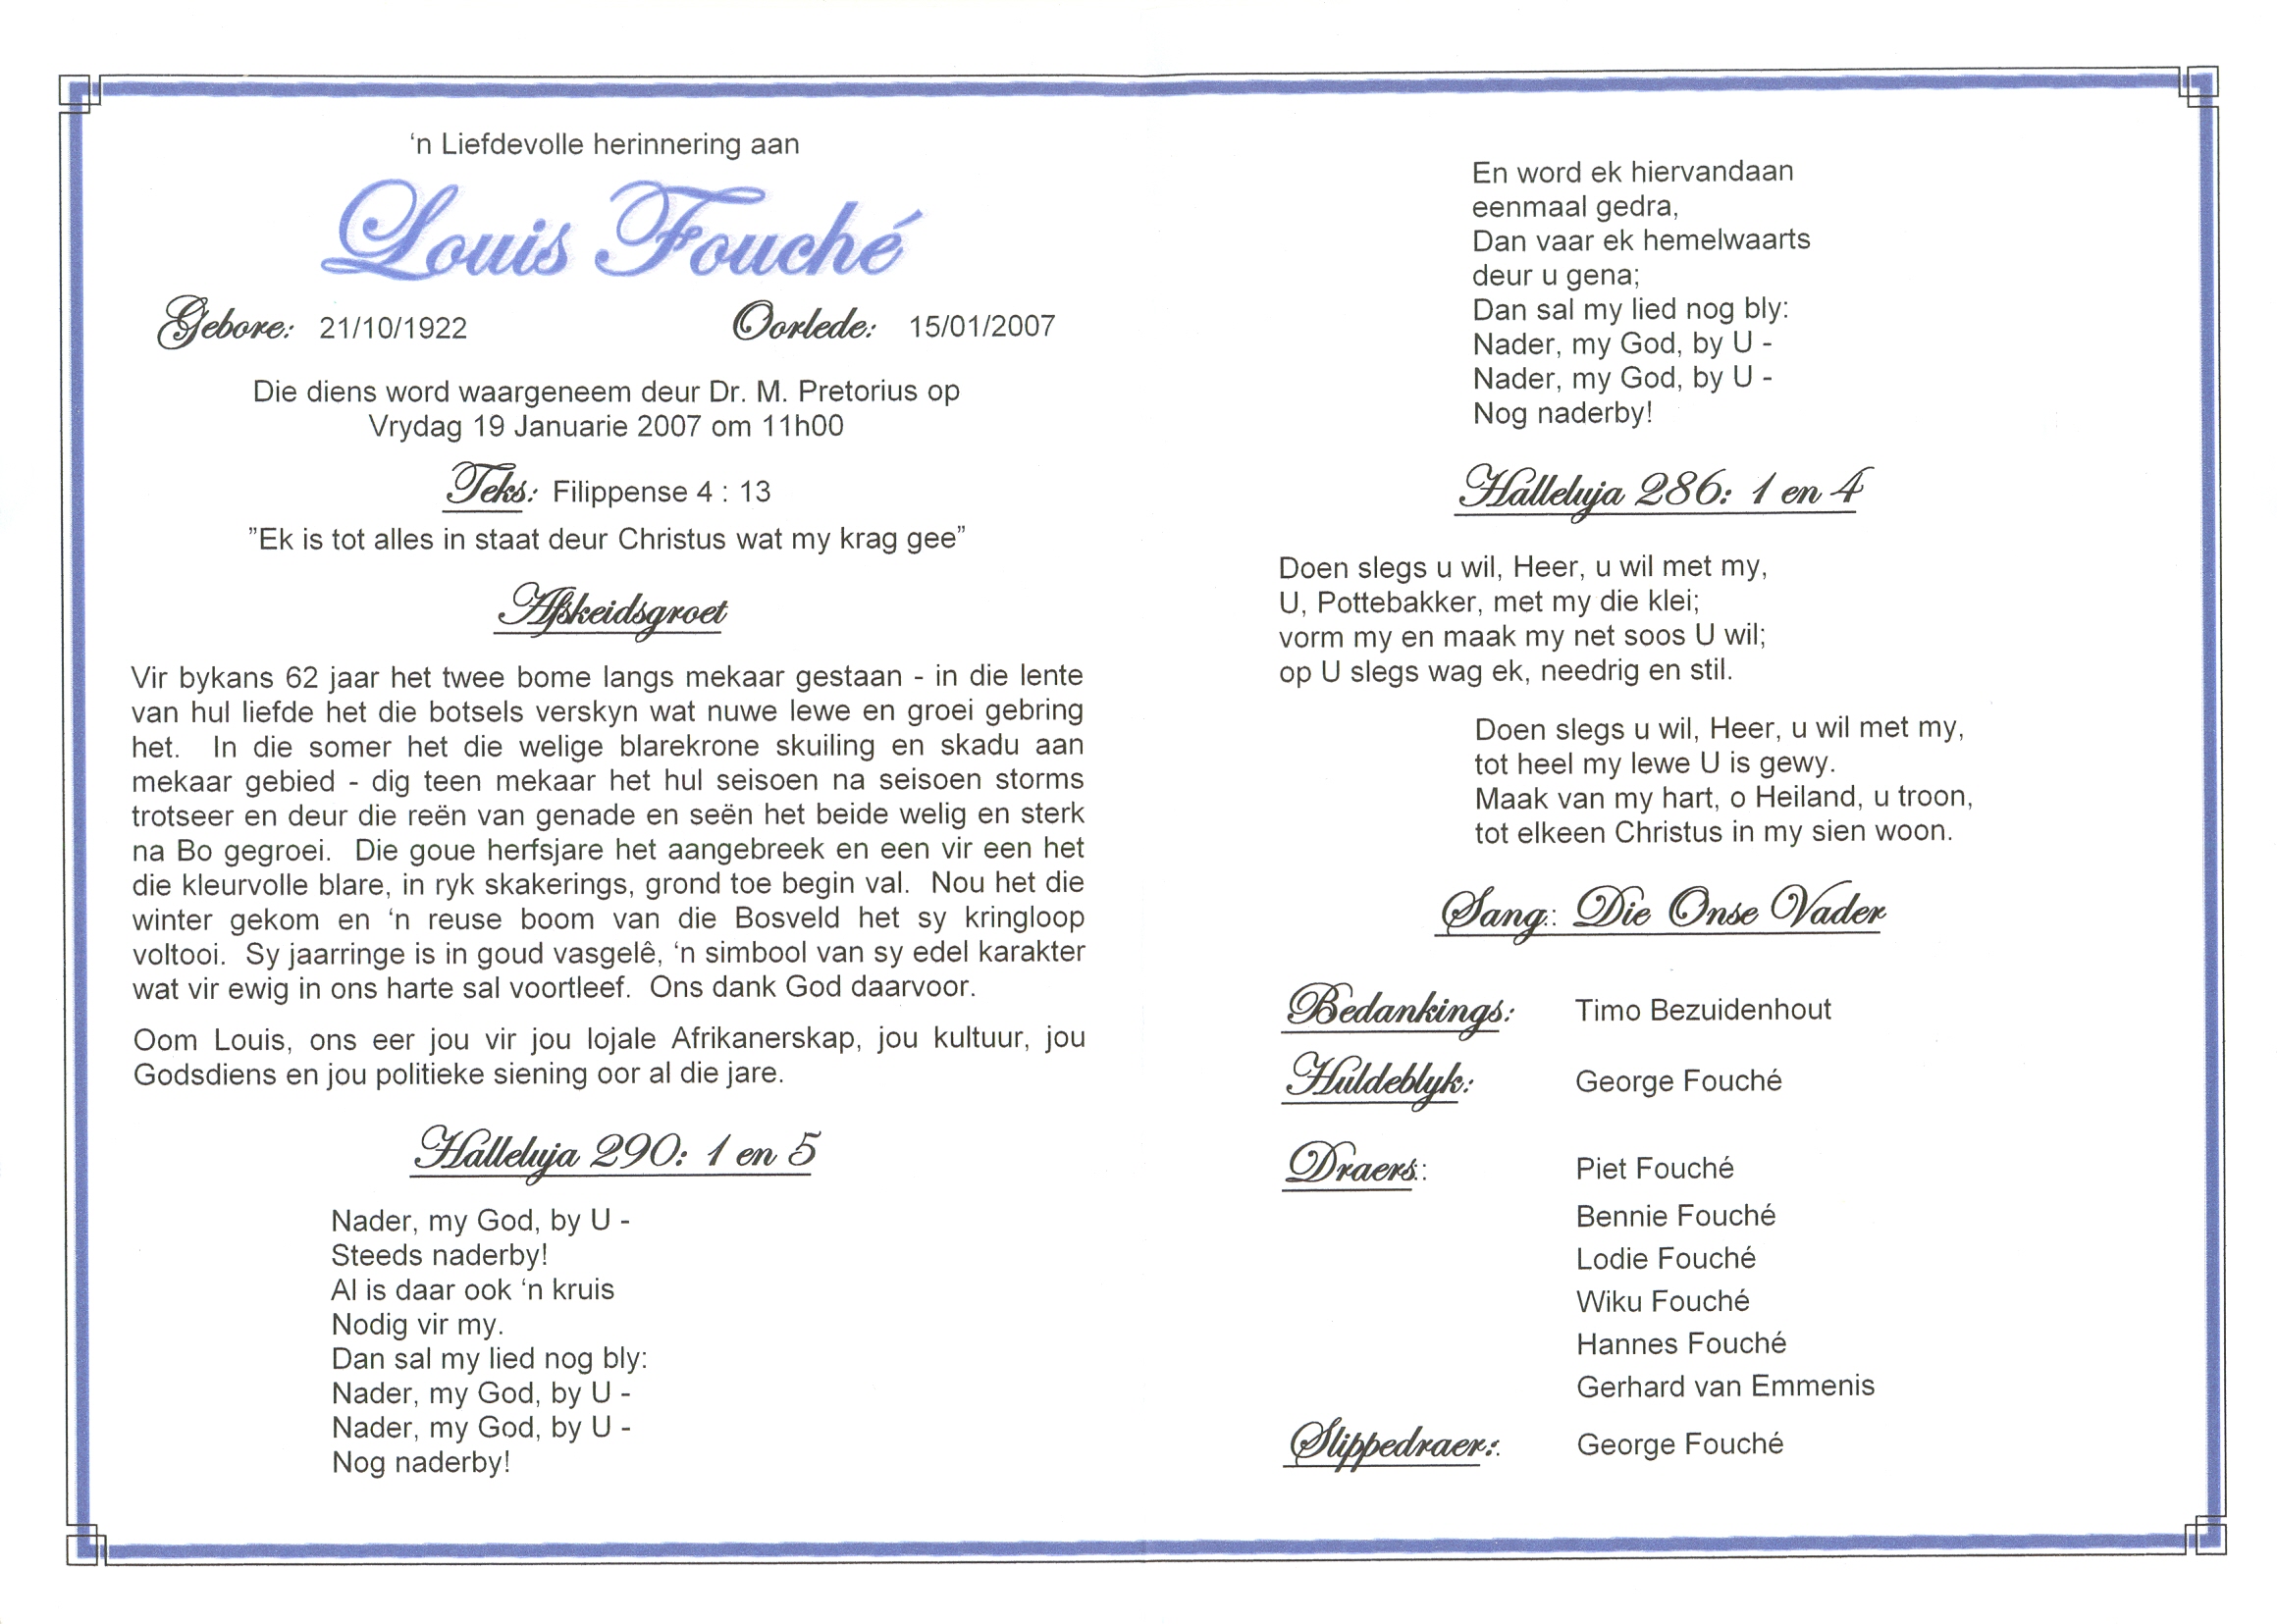 ‘n Liefdevolle herinnering aan
Louis Fouché
Gebore: 21/10/1922 Oorlede: 15/01/2007
Die diens word waargeneem deur Dr. M. Pretorius op
Vrydag 19 Januarie 2007 om 11h00
Teks: Filippense 4 : 13
”Ek is tot alles in staat deur Christus wat my krag gee”
Afskeidsgroet
Vir bykans 62 jaar het twee bome langs mekaar gestaan - in die lente
van hul liefde het die botsels verskyn wat nuwe lewe en groei gebring
het. In die somer het die welige blarekrone skuiling en skadu aan
mekaar gebied - dig teen mekaar het hul seisoen na seisoen storms
trotseer en deur die reën van genade en seën het beide welig en sterk
na Bo gegroei. Die goue herfsjare het aangebreek en een vir een het
die kleurvolle blare, in ryk skakerings, grond toe begin val. Nou het die
winter gekom en ‘n reuse boom van die Bosveld het sy kringloop
voltooi. Sy jaarringe is in goud vasgelê, ‘n simbool van sy edel karakter
wat vir ewig in ons harte sal voortleef. Ons dank God daarvoor.
Oom Louis, ons eer jou vir jou lojale Afrikanerskap, jou kultuur, jou
Godsdiens en jou politieke siening oor al die jare.
Halleluja 290: 1 en 5
Nader, my God, by U -
Steeds naderby!
Al is daar ook ‘n kruis
Nodig vir my.
Dan sal my lied nog bly:
Nader, my God, by U -
Nader, my God, by U -
Nog naderby!
En word ek hiervandaan
eenmaal gedra,
Dan vaar ek hemelwaarts
deur u gena;
Dan sal my lied nog bly:
Nader, my God, by U -
Nader, my God, by U -
Nog naderby!
Halleluja 286: 1 en 4
Doen slegs u wil, Heer, u wil met my,
U, Pottebakker, met my die klei;
vorm my en maak my net soos U wil;
op U slegs wag ek, needrig en stil.
Doen slegs u wil, Heer, u wil met my,
tot heel my lewe U is gewy.
Maak van my hart, o Heiland, u troon,
tot elkeen Christus in my sien woon.
Sang:: Die Onse Vader
Bedankings: Timo Bezuidenhout
Huldeblyk: George Fouché
Draers:: Piet Fouché
Bennie Fouché
Lodie Fouché
Wiku Fouché
Hannes Fouché
Gerhard van Emmenis
Slippedraer:: George Fouché